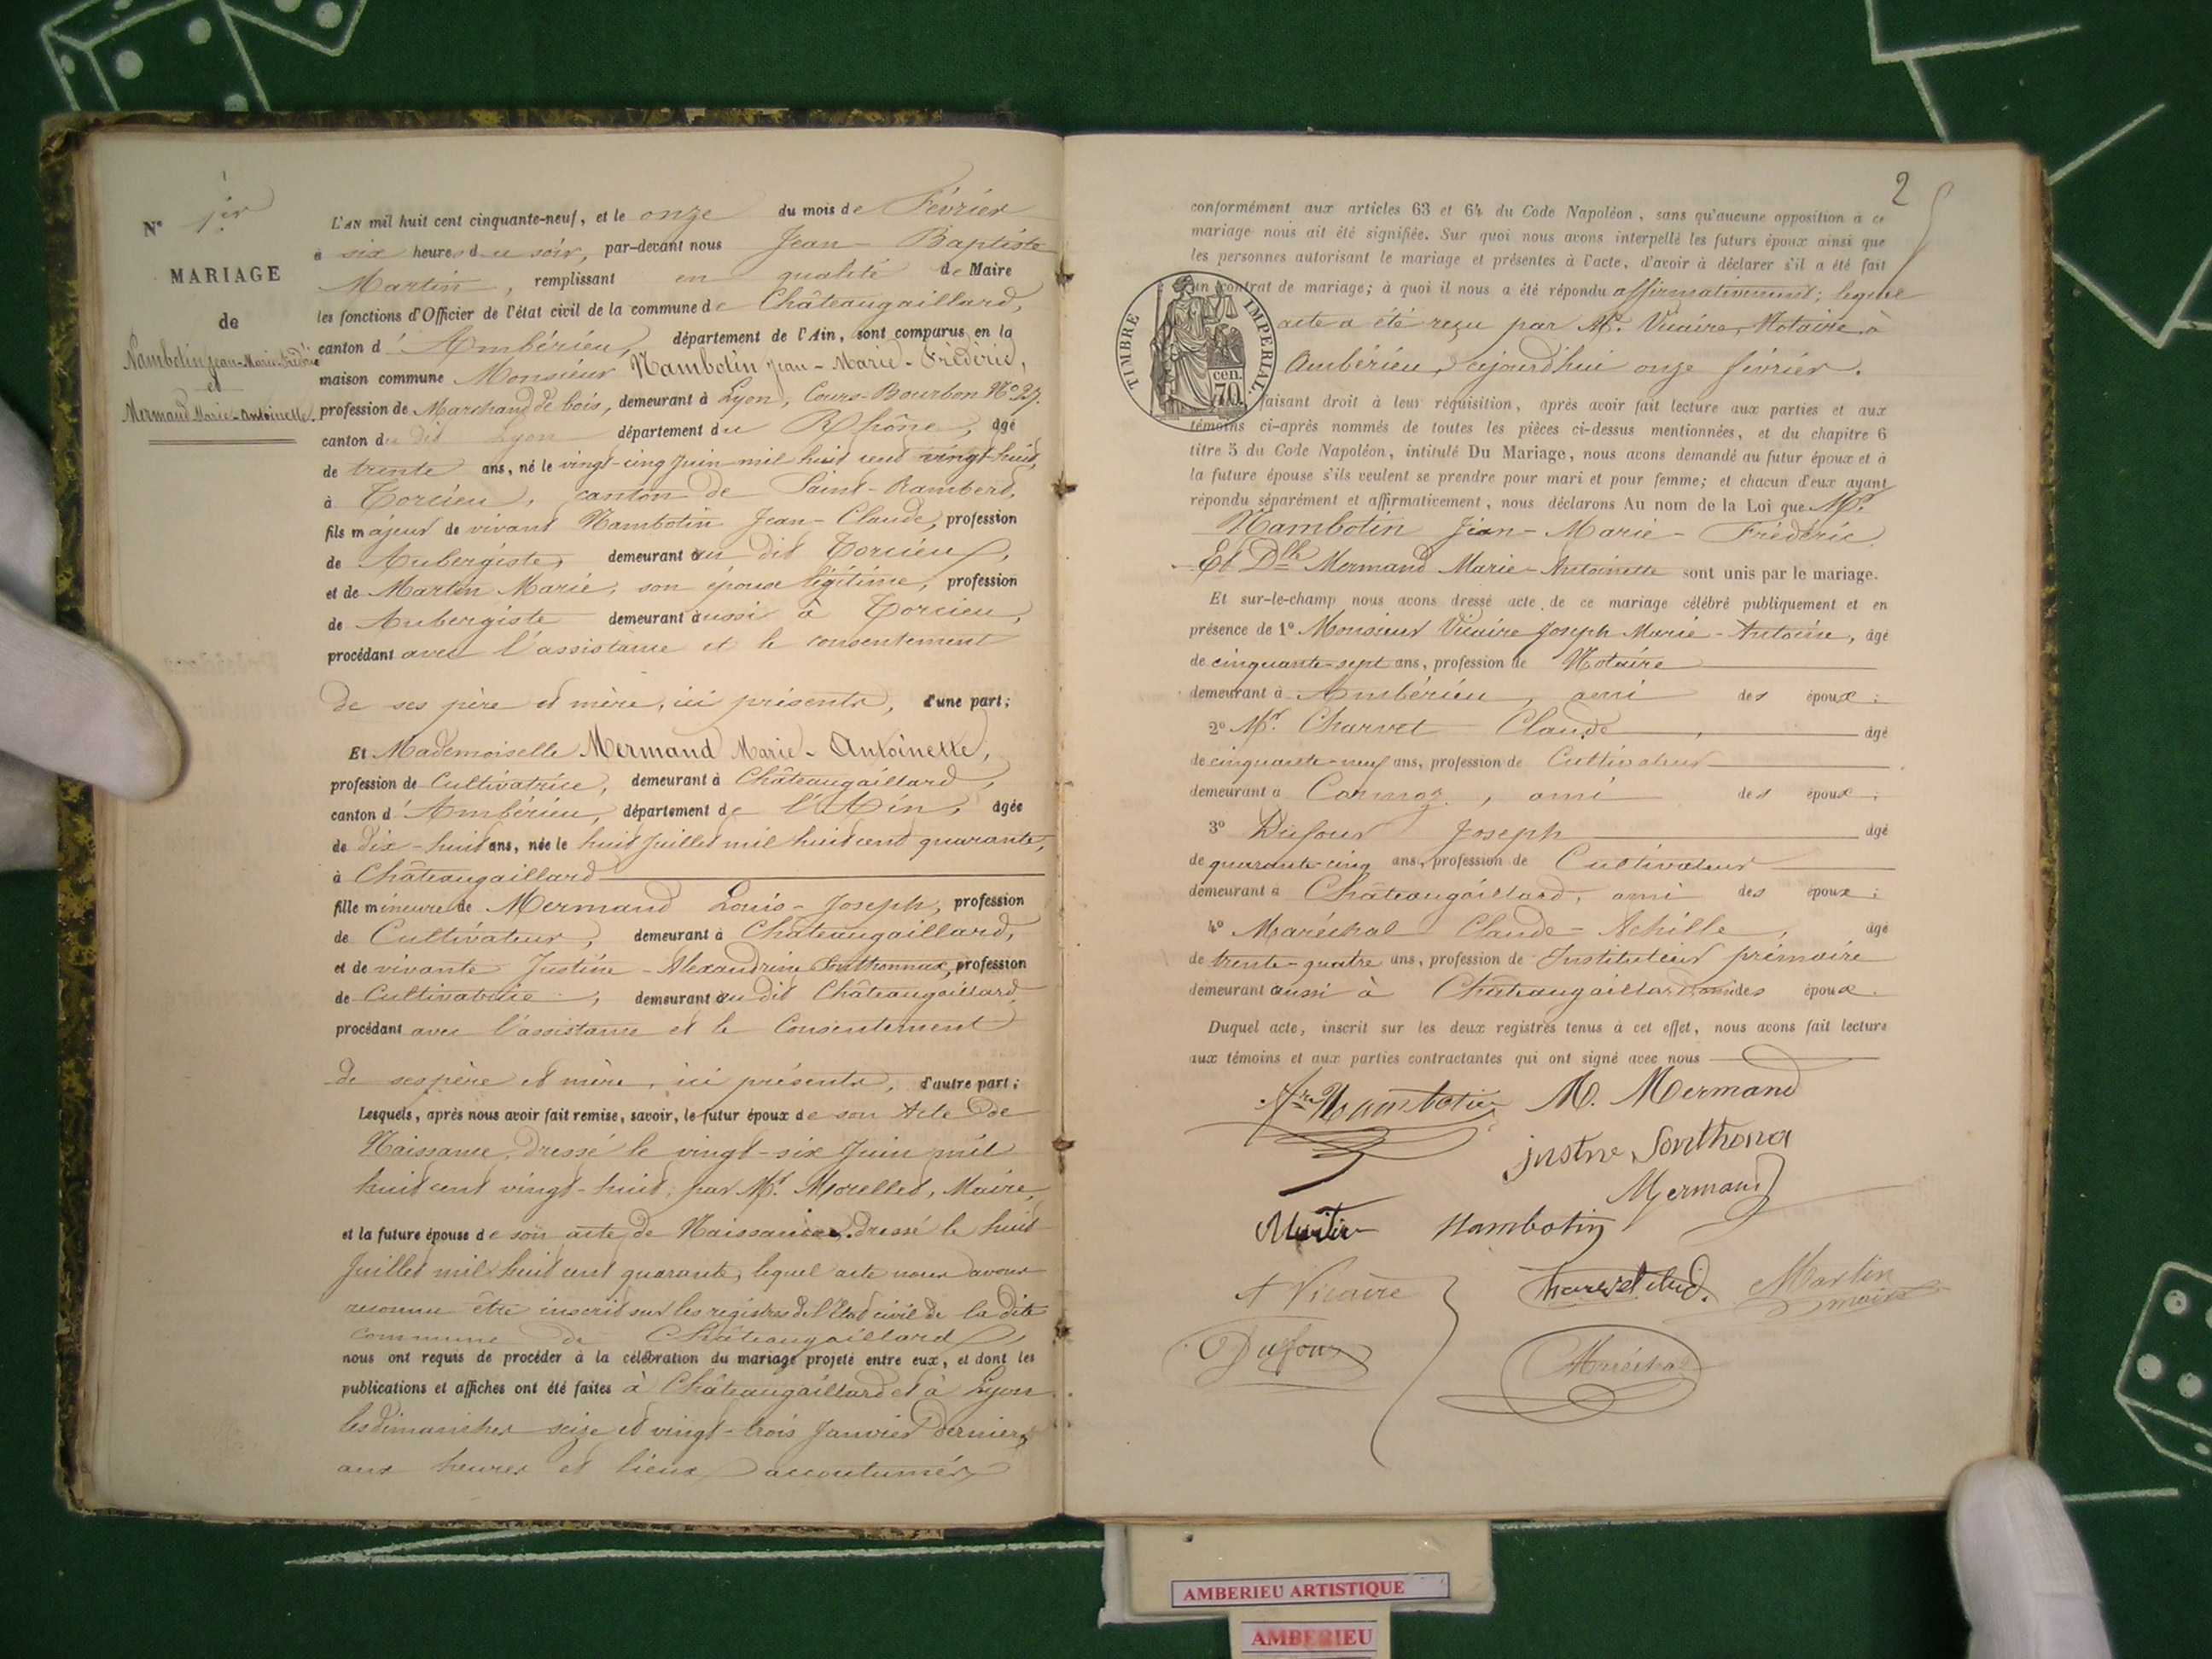 N° 1er
MARIAGE
de
Nambotin Jean-Marie-Frédéric
et
Mermand Marie-Antoinette.
L'AN mil huit cent cinquante-neuf, et le onze du mois de Février
à six heures du soir, par-devant nous Jean-Baptiste
Martin, remplissant en qualité de Maire
les fonctions d'Officier de l'état civil de la commune de Châteaugaillard,
canton d'Ambérieu, département de l'Ain, sont comparus en la
maison commune Monsieur Nambotin Jean-Marie-Frédéric,
profession de Marchand de bois, demeurant à Lyon, Cours-Bourbon N°
canton du dit Lyon département du Rhône, âgé
de trente ans, né le vingt-cinq Juin mil huit cent vingt-huit,
à Torcieu, canton de Saint-Rambert,
fils majeur de vivant Nambotin Jean-Claude, profession
de Aubergiste, demeurant au dit Torcieu,
et de Martin Marie, son épouse légitime, profession
de Aubergiste demeurant aussi à Torcieu,
procédant avec l'assistance et le consentement
de ses père et mère, ici présents, d'une part;
Et Mademoiselle Mermand Marie-Antoinette,
profession de Cultivatrice, demeurant à Châteaugaillard,
canton d'Ambérieu, département de l'Ain, âgée
de dix-huit ans, née le huit Juillet mil huit cent quarante,
à Châteaugaillard
fille mineure de Mermand Louis-Joseph, profession
de Cultivateur, demeurant à Châteaugaillard,
et de vivante Justine-Alexandrine Sonthonnax, profession
de Cultivatrice, demeurant au dit Châteaugaillard,
procédant avec l'assistance et le Consentement
de ses père et mère, ici présents, d'autre part;
Lesquels, après nous avoir fait remise, savoir, le futur époux de son Acte de
Naissance, dressé le vingt-six Juin mil
huit cent vingt-huit, par Mr. Morellet, Maire,
et la future épouse de son acte de Naissance, dressé le huit
Juillet mil huit cent quarante, lequel acte nous avons
reconnu être inscrit sur les registres de l'Etat civil de la dite
commune de Châteaugaillard,
nous ont requis de procéder à la célébration du mariage projeté entre eux, et dont les
publications et affiches ont été faites à Châteaugaillard et à Lyon
les dimanches seize et vingt-trois Janvier dernier,
aux heures et lieux accoutumés
2
conformément aux articles 63 et 64 du Code Napoléon, sans qu'aucune opposition à ce
mariage nous ait été signifiée. Sur quoi nous avons interpellé les futurs époux ainsi que
les personnes autorisant le mariage et présentes à l'acte, d'avoir à déclarer s'il a été fait
un contrat de mariage; à quoi il nous a été répondu affirmativement; lequel
acte a été reçu par Mr. Vicaire, Notaire à
Ambérieu, aujourd'hui onze février.
TIMBRE IMPERIAL
70 cen.
faisant droit à leur réquisition, après avoir fait lecture aux parties et aux
témoins ci-après nommés de toutes les pièces ci-dessus mentionnées, et du chapitre 6
titre 5 du Code Napoléon, intitulé Du Mariage, nous avons demandé au futur époux et à
la future épouse s'ils veulent se prendre pour mari et pour femme; et chacun d'eux ayant
répondu séparément et affirmativement, nous déclarons Au nom de la Loi que Mr.
Nambotin Jean-Marie-Frédéric
Et Dlle Mermand Marie-Antoinette sont unis par le mariage.
Et sur-le-champ nous avons dressé acte de ce mariage célébré publiquement et en
présence de 1° Monsieur Vicaire Joseph Marie-Antoine, âgé
de cinquante-sept ans, profession de Notaire
demeurant à Ambérieu, ami des époux;
2° Mr. Charvet Claude, âgé
de cinquante-neuf ans, profession de Cultivateur
demeurant à Cormoz, ami des époux;
3° Dufour Joseph âgé
de quarante-cinq ans, profession de Cultivateur
demeurant à Châteaugaillard, ami des époux;
4° Maréchal Claude-Achille, âgé
de trente-quatre ans, profession de Instituteur primaire
demeurant aussi à Châteaugaillard ami des époux.
Duquel acte, inscrit sur les deux registres tenus à cet effet, nous avons fait lecture
aux témoins et aux parties contractantes qui ont signé avec nous
Nambotin M. Mermand
justine Sonthonax
Mermand
Martin Nambotin
Vicaire Martin
maire
Dufour Maréchal
AMBERIEU ARTISTIQUE
AMBERIEU